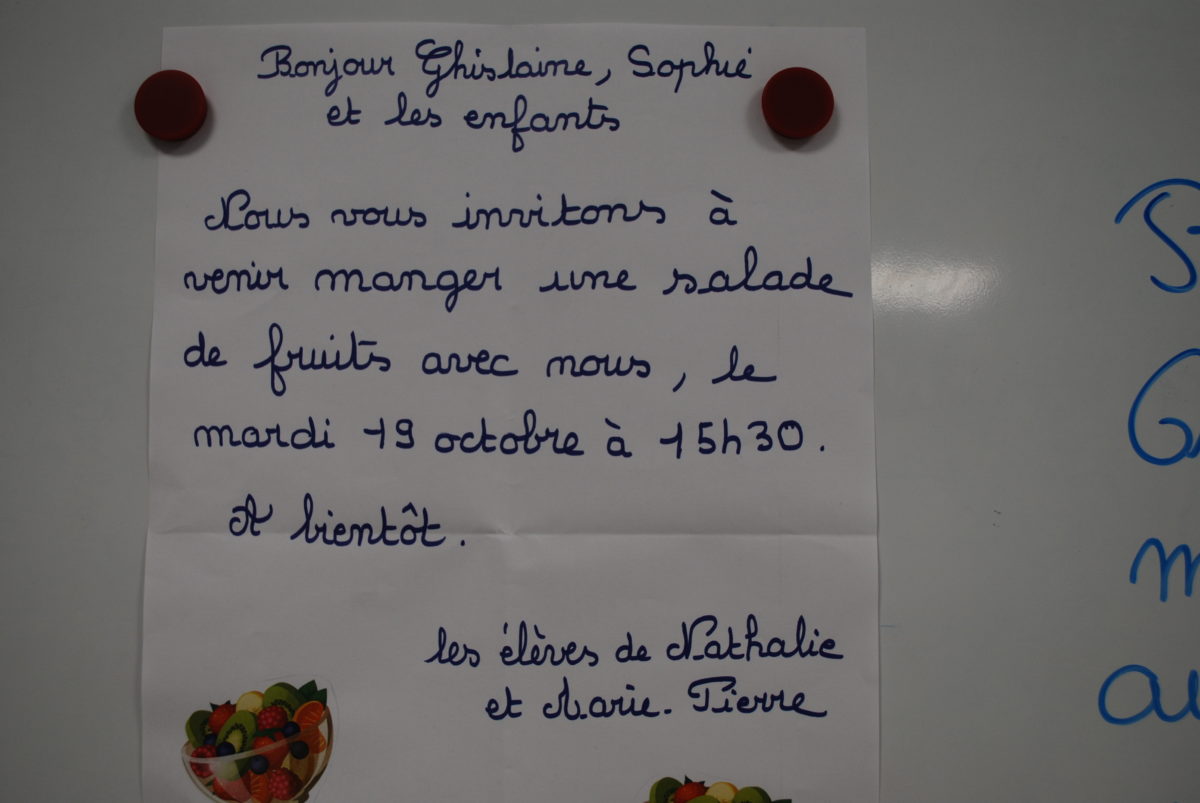 Bonjour Ghislaine, Sophie
et les enfants
Nous vous invitons à
venir manger une salade
de fruits avec nous, le
mardi 19 octobre à 15h30.
A bientôt.
les élèves de Nathalie
et Marie-Pierre
m
au